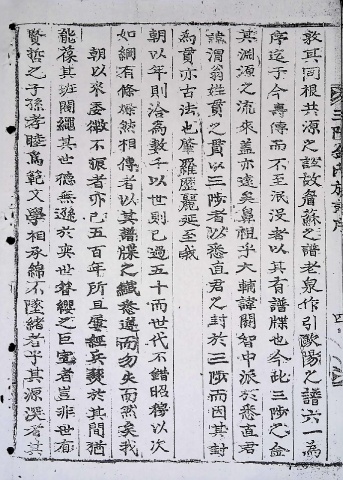 三陟金氏族譜序
敦其同根共源之誼故眉蘇之譜老泉作引歐陽之譜六一爲
序迄于今壽傳而不至泯沒者以其有譜牒也今此三陟之金
其淵源之流來盖亦遠矣鼻祖乎大輔諱閼智中派於悉直君
諱渭翁姓貫之貫以三陟者以悉直君之封於三陟而因其封
爲貫亦古法也肇羅歷麗延至我
朝以年則洽爲數千以世則已過五十而世代不錯昭穆以次
如綱有條燦然相傳者以其譜牒之纖悉遏而勿失而然矣我
朝以來委微不振者亦已五百年所且屢經兵燹於其間猶
能葆其班閥繩其世德無遜於奕世簪纓之巨室者豈非世有
賢哲之子孫孝睦爲範文學相承綿不墜緒者乎其源深者其